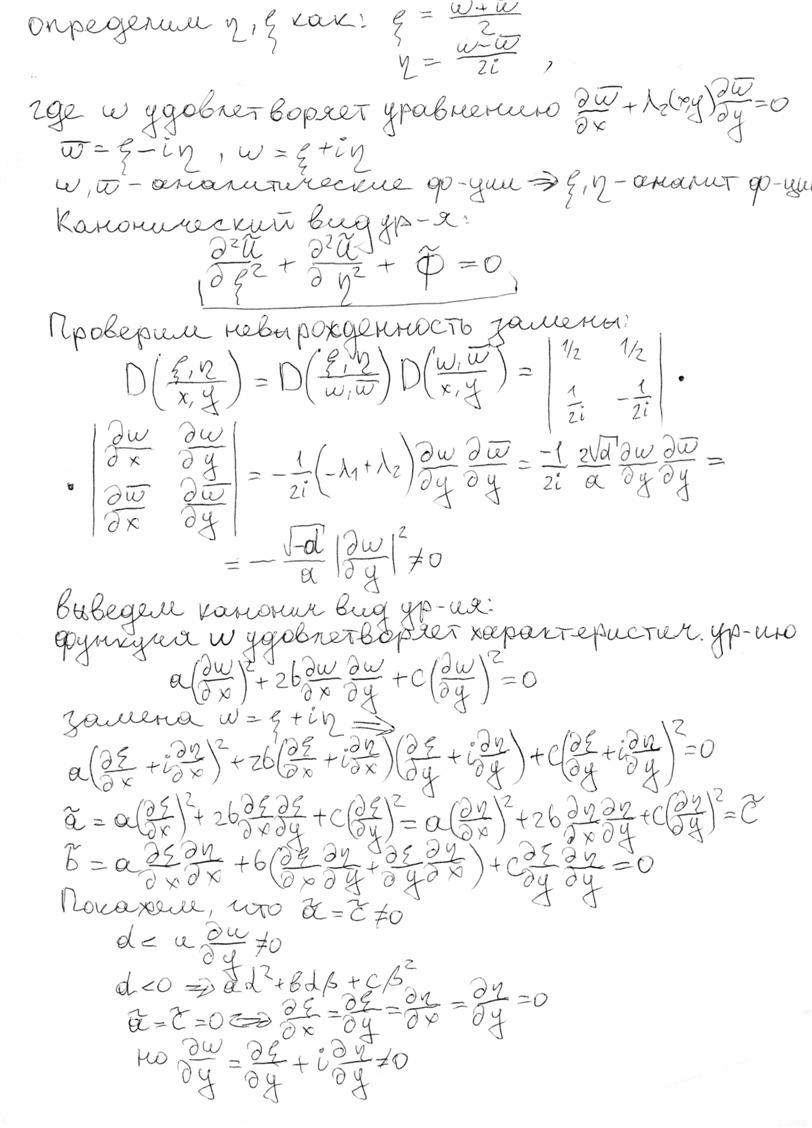 определим η, ξ как: ξ = (w+w̅)/2
η = (w−w̅)/2i ,
где w удовлетворяет уравнению ∂w̅/∂x + λ₂(x,y) ∂w̅/∂y = 0
w̅ = ξ − iη , w = ξ + iη
w, w̅ − аналитические ф-ции ⇒ ξ, η − аналит ф-ци
Канонический вид ур-я:
∂²ũ/∂ξ² + ∂²ũ/∂η² + Φ̃ = 0
Проверим невырожденность замены:
D(ξ,η / x,y) = D(ξ,η / w,w̅) D(w,w̅ / x,y) = | 1/2 1/2 ; 1/2i −1/2i | ·
· | ∂w/∂x ∂w/∂y ; ∂w̅/∂x ∂w̅/∂y | = −1/2i (−λ₁+λ₂) ∂w/∂y ∂w̅/∂y = −1/2i 2√d/a ∂w/∂y ∂w̅/∂y =
= − √−d/a |∂w/∂y|² ≠ 0
выведем канонич вид ур-ия:
функция w удовлетворяет характеристич. ур-ию
a(∂w/∂x)² + 2b ∂w/∂x ∂w/∂y + c(∂w/∂y)² = 0
замена w = ξ + iη ⇒
a(∂ξ/∂x + i ∂η/∂x)² + 2b(∂ξ/∂x + i ∂η/∂x)(∂ξ/∂y + i ∂η/∂y) + c(∂ξ/∂y + i ∂η/∂y)² = 0
ã = a(∂ξ/∂x)² + 2b ∂ξ/∂x ∂ξ/∂y + c(∂ξ/∂y)² = a(∂η/∂x)² + 2b ∂η/∂x ∂η/∂y + c(∂η/∂y)² = c̃
b̃ = a ∂ξ/∂x ∂η/∂x + b(∂ξ/∂x ∂η/∂y + ∂ξ/∂y ∂η/∂x) + c ∂ξ/∂y ∂η/∂y = 0
Покажем, что ã = c̃ ≠ 0
d < и ∂w/∂y ≠ 0
d<0 ⇒ aα² + bαβ + cβ²
ã = c̃ = 0 ⇔ ∂ξ/∂x = ∂ξ/∂y = ∂η/∂x = ∂η/∂y = 0
но ∂w/∂y = ∂ξ/∂y + i ∂η/∂y ≠ 0